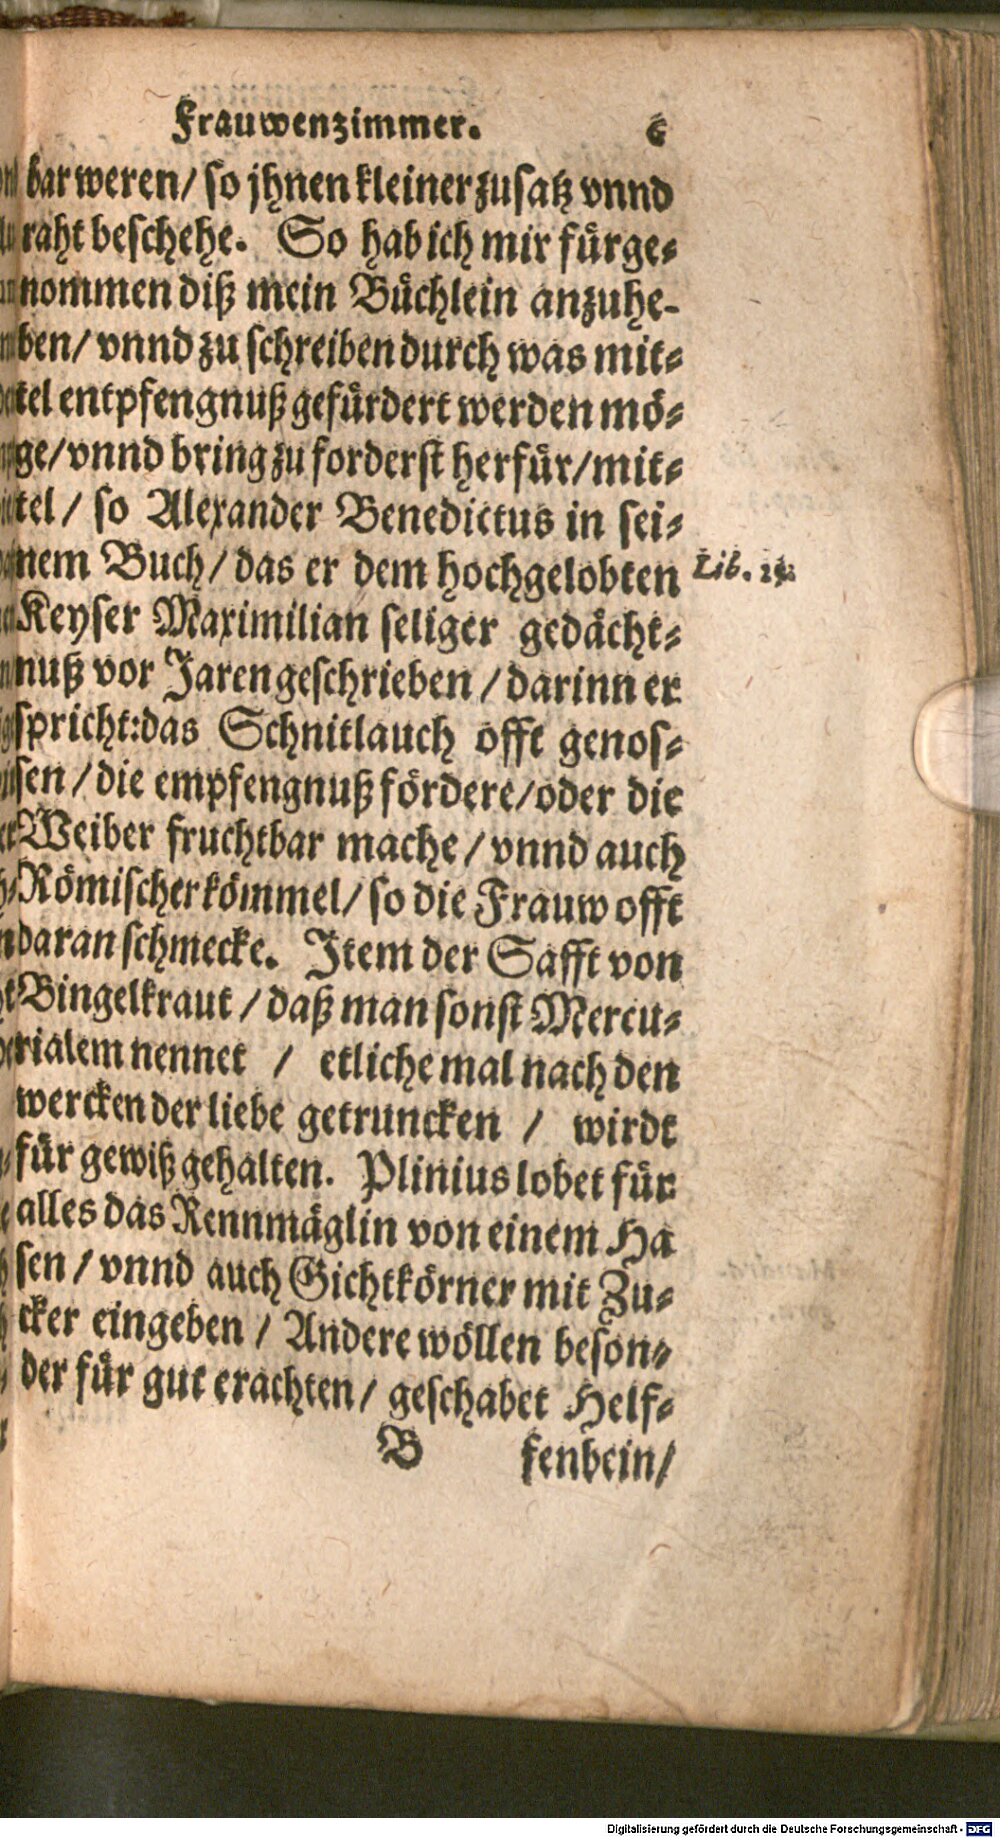 Frauwenzimmer. 6
bar weren/ so jhnen kleiner zusatz vnnd
raht beschehe. So hab ich mir fürge⸗
nommen diß mein Büchlein anzuhe⸗
ben/ vnnd zu schreiben durch was mit⸗
tel entpfengnuß gefürdert werden mö⸗
ge/ vnnd bring zu forderst herfür/ mit⸗
tel/ so Alexander Benedictus in sei⸗
nem Buch/ das er dem hochgelobten
Lib.
Keyser Maximilian seliger gedächt⸗
nuß vor Jaren geschrieben/ darinn er
spricht: das Schnitlauch offt genos⸗
sen/ die empfengnuß fördere/ oder die
Weiber fruchtbar mache/ vnnd auch
Römischer kömmel/ so die Frauw offt
daran schmecke. Item der Safft von
Bingelkraut/ daß man sonst Mercu⸗
rialem nennet / etliche mal nach den
wercken der liebe getruncken / wirdt
für gewiß gehalten. Plinius lobet für
alles das Rennmäglin von einem Ha
sen/ vnnd auch Gichtkörner mit Zu⸗
cker eingeben/ Andere wöllen beson⸗
der für gut erachten/ geschabet Helf⸗
B fenbein/
Digitalisierung gefördert durch die Deutsche Forschungsgemeinschaft - DFG